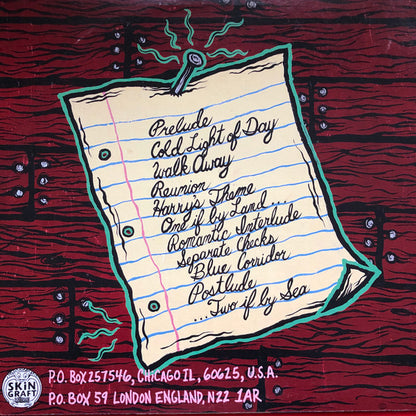 Prelude
Cold Light of Day
Walk Away
Reunion
Harry's Theme
One if by Land ...
Romantic Interlude
Separate Checks
Blue Corridor
Postlude
...Two if by Sea
SKiN GRAFT
P.O. BOX 257546, CHICAGO IL, 60625, U.S.A.
P.O. BOX 59 LONDON ENGLAND, N22 1AR